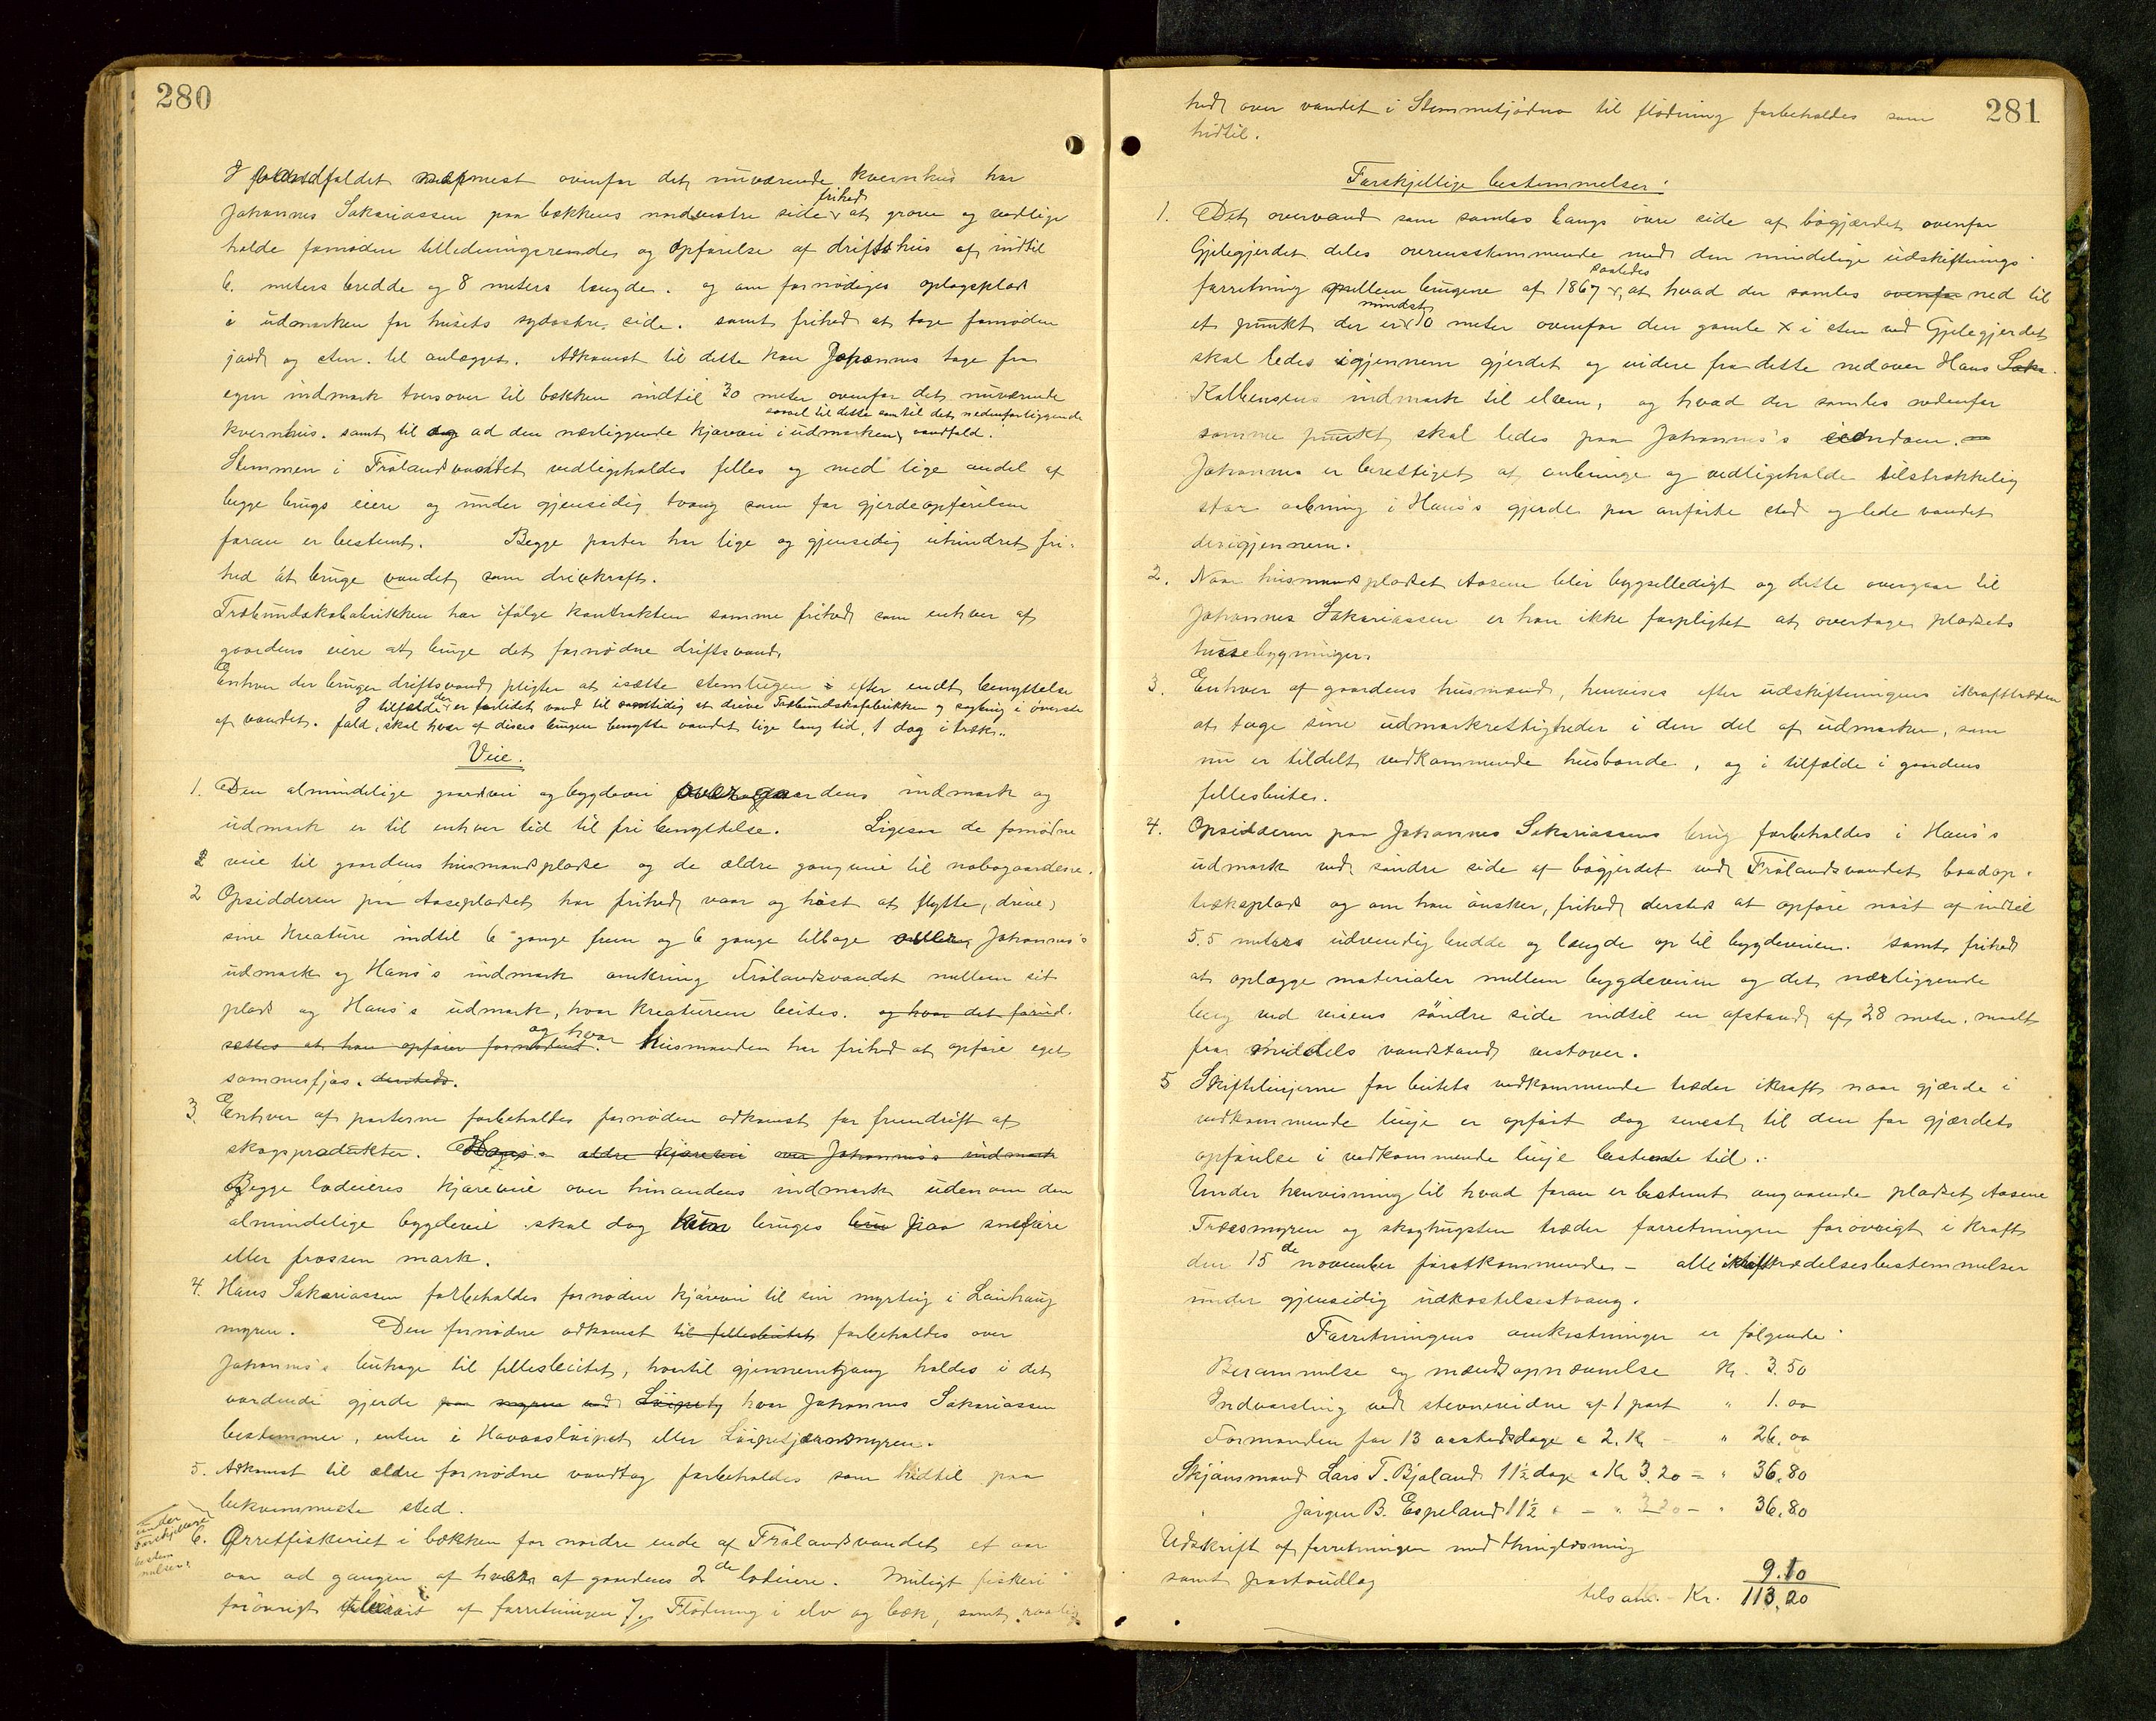 280
I vandfaldet nærmest ovenfor det nuværende kvernhus har
Johannes Sakariassen paa bækkens nordvestre side frihed at grave og vedlige
holde fornøden tilledningsrende og opførelse af driftshus af indtil
6. meters bredde og 8 meters længde. og om fornødiges oplagsplads
i udmarken for husets sydøstre side. samt frihed at tage fornøden
jord og sten til anlægget. Adkomst til dette kan Johannes tage fra
egen indmark tversover til bækken indtil 30 meter ovenfor det nuværende
kvernhus. samt til og ad den nærliggende kjørevei i udmarken saavel til dette som til det nedenforliggende vandfald.
Stemmen i Frølandsvandet vedligeholdes felles og med lige andel af
begge brugs eiere og under gjensidig tvang som for gjerdeopførelsen
foran er bestemt. Begge parter har lige og gjensidig uhindret fri-
hed at bruge vandet som drivkraft.
Træbundskofabrikken har ifølge kontrakten samme frihed som enhver af
gaardens eiere at bruge det fornødne driftsvand.
Enhver der bruger driftsvand pligter at isætte stemlugen i efter endt benyttelse
af vandet. I tilfælde der er forlidet vand til samtidig at drive Træbundskofabrikken og sagbrug i øverste
fald, skal hver af disses brugere benytte vandet lige lang tid, 1 dag i træk..
Veie.
1. Den almindelige gaardvei og bygdevei over gaardens indmark og
udmark er til enhver tid til fri benyttelse. Ligesaa de fornødne
2 veie til gaardens husmandspladse og de ældre gangveie til nabogaardene.
2 Opsidderen paa Aasepladset har frihed vaar og høst at flytte (drive)
sine kreature indtil 6 gange frem og 6 gange tilbage over Johannes's
udmark og Hans's indmark omkring Frølandsvandet mellem sit
plads og Hans's udmark, hvor kreaturene beites. og hvor det forud-
sættes at han opfører fornødent. og hvor Husmanden har frihed at opføre eget
sommerfjøs. dersteds.
3. Enhver af parterne forbeholdes fornøden adkomst for fremdrift af
skogsprodukter. Hans's ældre kjørevei over Johannes's indmark
Begge lodeieres kjøreveie over hinandens indmark udenom den
almindelige bygdevei skal dog kun bruges kun paa sneføre
eller frossen mark.
4. Hans Sakariassen forbeholdes fornøden kjørevei til sin myrteig i Lauhaug
myren. Den fornødne adkomst til fellesbeitet forbeholdes over
Johannes's beitage til fellesbeitet, hvortil gjennemgang holdes i det
vordende gjerde paa myren ved Løipet, hvor Johannes Sakariassen
bestemmer, enten i Havaasløipet eller Løipetjærnsmyren.
5. Adkomst til ældre fornødne vandtag forbeholdes som hidtil paa
bekvemmeste sted.
under
Forskjellige
bestem
melser:
6. Ørretfiskeriet i bækken for nordre ende af Frølandsvandet et aar
om ad gangen af hver af gaardens 2de lodeiere. Muligt fiskeri
forøvrigt af forretningen 7. Flødning i elv og bæk, samt raadig
281
hed over vandet i Stemmetjødna til flødning forbeholdes som
hidtil.
Forskjellige bestemmelser:
1. Det overvand som samles langs øvre side af bøgjærdet ovenfor
Gjilegjerdet deles overensstemmende med den mindelige udskiftnings-
forretning mellem brugene af 1867, saaledes at hvad der samles ovenfor ned til
et punkt der er mindst 10 meter ovenfor den gamle X i sten ved Gjilegjerdet
skal ledes igjennem gjerdet og videre fra dette nedover Hans Saka-
Kolbensens indmark til elven, og hvad der samles nedenfor
samme punkt skal ledes paa Johannes's eiendom.
Johannes er berettiget at anbringe og vedligeholde tilstrækkelig
stor aabning i Hans's gjerde paa anførte sted og lede vandet
derigjennem.
2. Naar husmandspladset Aasene blir bygselledigt og dette overgaar til
Johannes Sakariassen er han ikke forpligtet at overtage pladsets
husebygninger.
3. Enhver af gaardens husmænd, henvises efter udskiftningens ikrafttræden
at tage sine udmarkrettigheder i den del af udmarken, som
nu er tildelt vedkommende husbonde, og i tilfælde i gaardens
fellesbeite.
4. Opsidderen paa Johannes Sakariassens brug forbeholdes i Hans's
udmark ved søndre side af bøgjerdet ved Frølandsvandet baadop-
træksplads og om han ønsker, frihed dersteds at opføre nøst af indtil
5.5 meters udvendig bredde og længde op til bygdeveien. samt frihed
at oplægge materialer mellem bygdeveien og det nærliggende
berg ved veiens søndre side indtil en afstand af 28 meter, maalt
fra middels vandstand vestover.
5 Skiftelinjerne for beitets vedkommende træder ikraft naar gjærde i
vedkommende linje er opført dog senest til den for gjærdets
opførelse i vedkommende linje bestemte tid.
Under henvisning til hvad foran er bestemt angaaende pladset Aasene
Træsmyren og skoghugsten træder forretningen forøvrigt i kraft
den 15de november førstkommende – alle ikrafttrædelsesbestemmelser
under gjensidig udkastelsestvang.
Forretningens omkostninger er følgende:
Berammelse og mændsopnævnelse Kr. 3.50
Indvarsling ved stevnevidne af 1 part " 1.00
Formanden for 13 aastedsdage a 2. Kr – " 26.00
Skjønsmand Lars T. Bjøland 11½ dage a Kr 3.20 = " 36.80
Jørgen B. Espeland 11½ " – " 3.20 – " 36.80
Udskrift af forretningen med thinglæsning
samt portoudlæg 9.10
tilsam. – Kr. 113.20